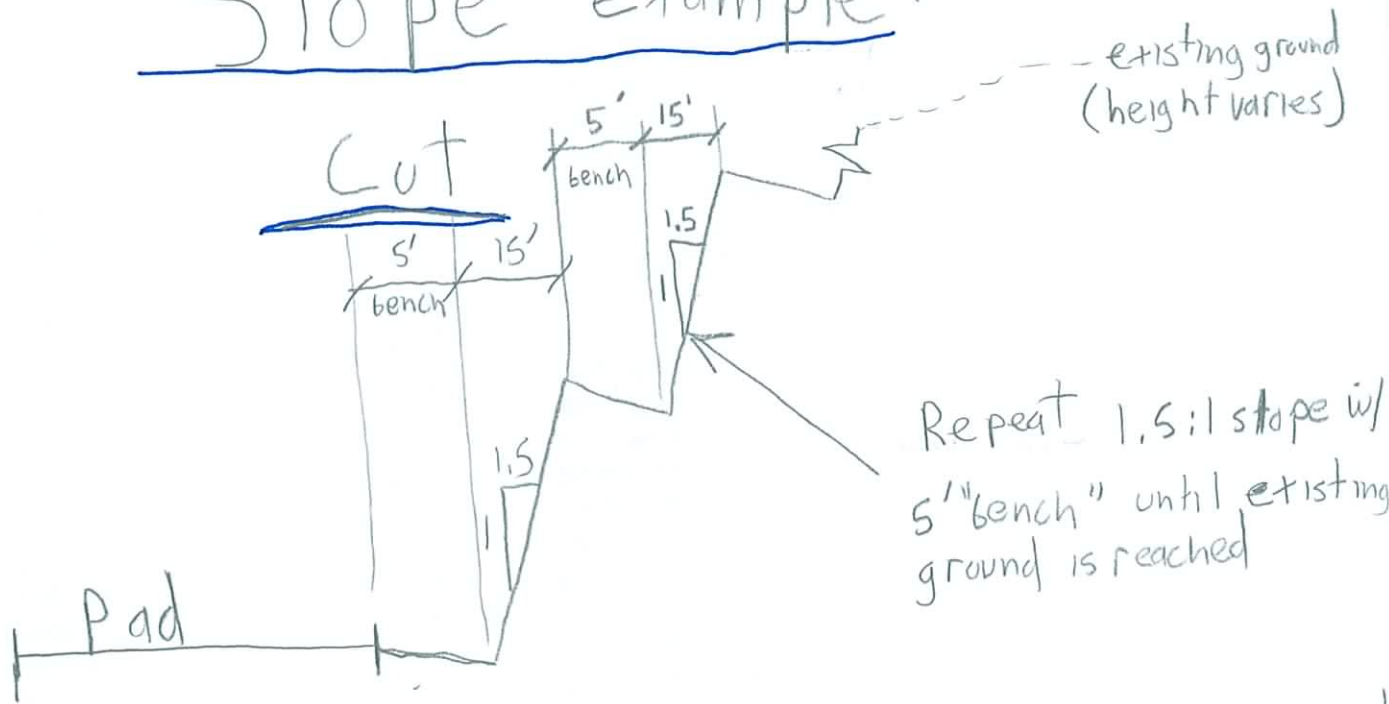 Slope Example
existing ground
(height varies)
5' 15'
bench
Cut
5' 15'
bench
1.5
1
1.5
1
Repeat 1.5:1 slope w/
5' "bench" until existing
ground is reached
Pad